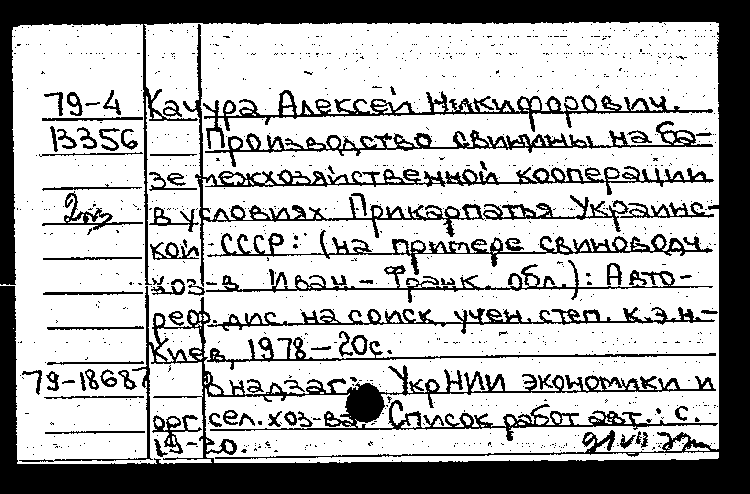 79-4 Качура, Алексей Никифорович.
13356 Производство свинины на ба-
зе межхозяйственной кооперации
в условиях Прикарпатья Украинс-
кой СССР: (на примере свиноводч.
хоз-в Иван.-Франк. обл.): Авто-
реф. дис. на соиск. учен. степ. к.э.н.-
Киев, 1978-20с.
79-18687 В надзаг: УкрНИИ экономики и
орг. сел. хоз-ва. Список работ авт.: с.
19-20.